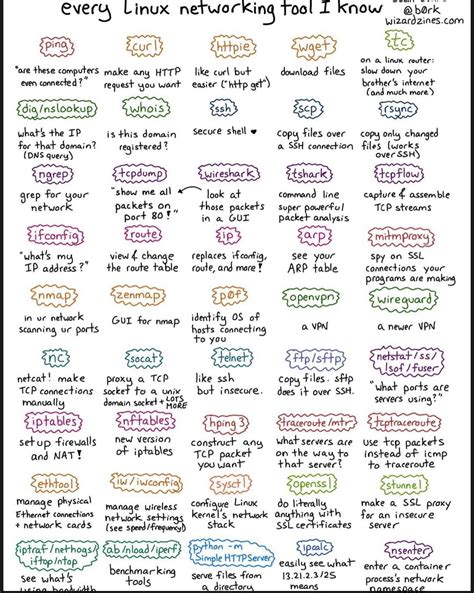 every Linux networking tool I know
@b0rk
wizardzines.com
ping
"are these computers
even connected?"
curl
make any HTTP
request you want
httpie
like curl but
easier ("http get")
wget
download files
tc
on a linux router:
slow down your
brother's internet
(and much more)
dig/nslookup
what's the IP
for that domain?
(DNS query)
whois
is this domain
registered?
ssh
secure shell ♥
scp
copy files over
a SSH connection
rsync
copy only changed
files (works
over SSH)
ngrep
grep for your
network
tcpdump
"show me all
packets on
port 80!"
wireshark
look at
those packets
in a GUI
tshark
command line
super powerful
packet analysis
tcpflow
capture & assemble
TCP streams
ifconfig
"what's my
IP address?"
route
view & change
the route table
ip
replaces ifconfig,
route, and more!
arp
see your
ARP table
mitmproxy
spy on SSL
connections your
programs are making
nmap
in ur network
scanning ur ports
zenmap
GUI for nmap
p0f
identify OS of
hosts connecting
to you
openvpn
a VPN
wireguard
a newer VPN
nc
netcat! make
TCP connections
manually
socat
proxy a TCP
socket to a unix
domain socket + LOTS
MORE
telnet
like ssh
but insecure.
ftp/sftp
copy files. sftp
does it over SSH.
netstat/ss/
lsof/fuser
"what ports are
servers using?"
iptables
set up firewalls
and NAT!
nftables
new version
of iptables
hping3
construct any
TCP packet
you want
traceroute/mtr
what servers are
on the way to
that server?
tcptraceroute
use tcp packets
instead of icmp
to traceroute
ethtool
manage physical
Ethernet connections
+ network cards
iw/iwconfig
manage wireless
network settings
(see speed/frequency)
sysctl
configure Linux
kernel's network
stack
openssl
do literally
anything with
SSL certificates
stunnel
make a SSL proxy
for an insecure
server
iptraf/nethogs/
iftop/ntop
see what's
using bandwidth
ab/nload/iperf
benchmarking
tools
python -m
SimpleHTTPServer
serve files from
a directory
ipcalc
easily see what
13.21.2.3/25
means
nsenter
enter a container
process's network
namespace